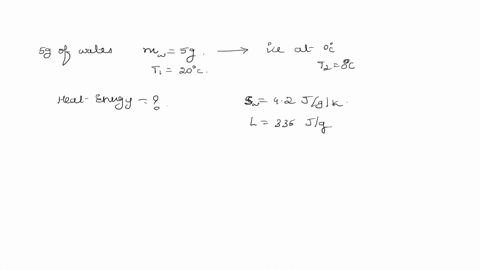 5g of water m_w = 5g. ⟶ ice at 0°C
T₁ = 20°C. T₂ = 0°C
Heat Energy = ? S_w = 4.2 J/g/K.
L = 336 J/g